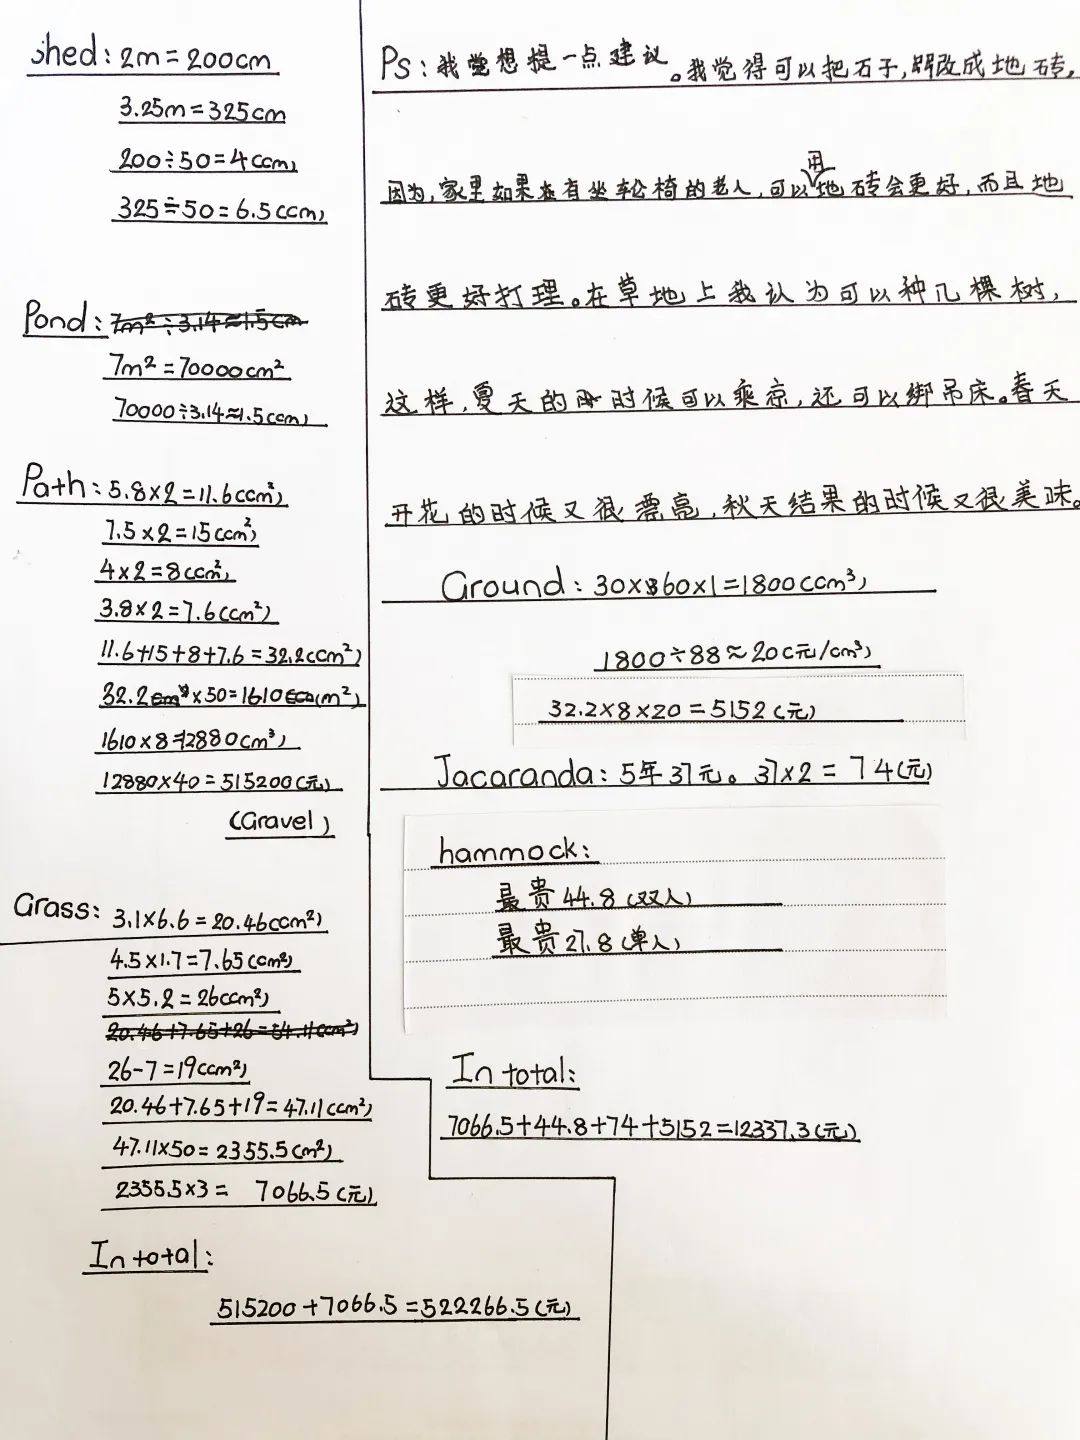 Shed: 2m = 200cm
3.25m = 325cm
200÷50=4(cm)
325÷50=6.5(cm)
Pond: 7m²÷3.14≈1.5cm
7m²=70000cm²
70000÷3.14≈1.5(cm)
Path: 5.8×2=11.6(cm²)
7.5×2=15(cm²)
4×2=8(cm²)
3.8×2=7.6(cm²)
11.6+15+8+7.6=32.2(cm²)
32.2×50=1610(m²)
1610×8=12880(cm³)
12880×40=515200(元)
(Gravel)
Grass: 3.1×6.6=20.46(cm²)
4.5×1.7=7.65(cm²)
5×5.2=26(cm²)
20.46+7.65+26=54.11(cm²)
26-7=19(cm²)
20.46+7.65+19=47.11(cm²)
47.11×50=2355.5(m²)
2355.5×3= 7066.5(元)
In total:
515200+7066.5=522266.5(元)
Ps:我觉想提一点建议。我觉得可以把石子,改成地砖,
因为,家里如果有坐轮椅的老人,可以用地砖会更好,而且地
砖更好打理。在草地上我认为可以种几棵树,
这样,夏天的时候可以乘凉,还可以绑吊床。春天
开花的时候又很漂亮,秋天结果的时候又很美味。
Ground: 30×60×1=1800(cm³)
1800÷88≈20(元/cm³)
32.2×8×20=5152(元)
Jacaranda: 5年37元。37×2=74(元)
hammock:
最贵44.8(双人)
最贵27.8(单人)
In total:
7066.5+44.8+74+5152=12337.3(元)